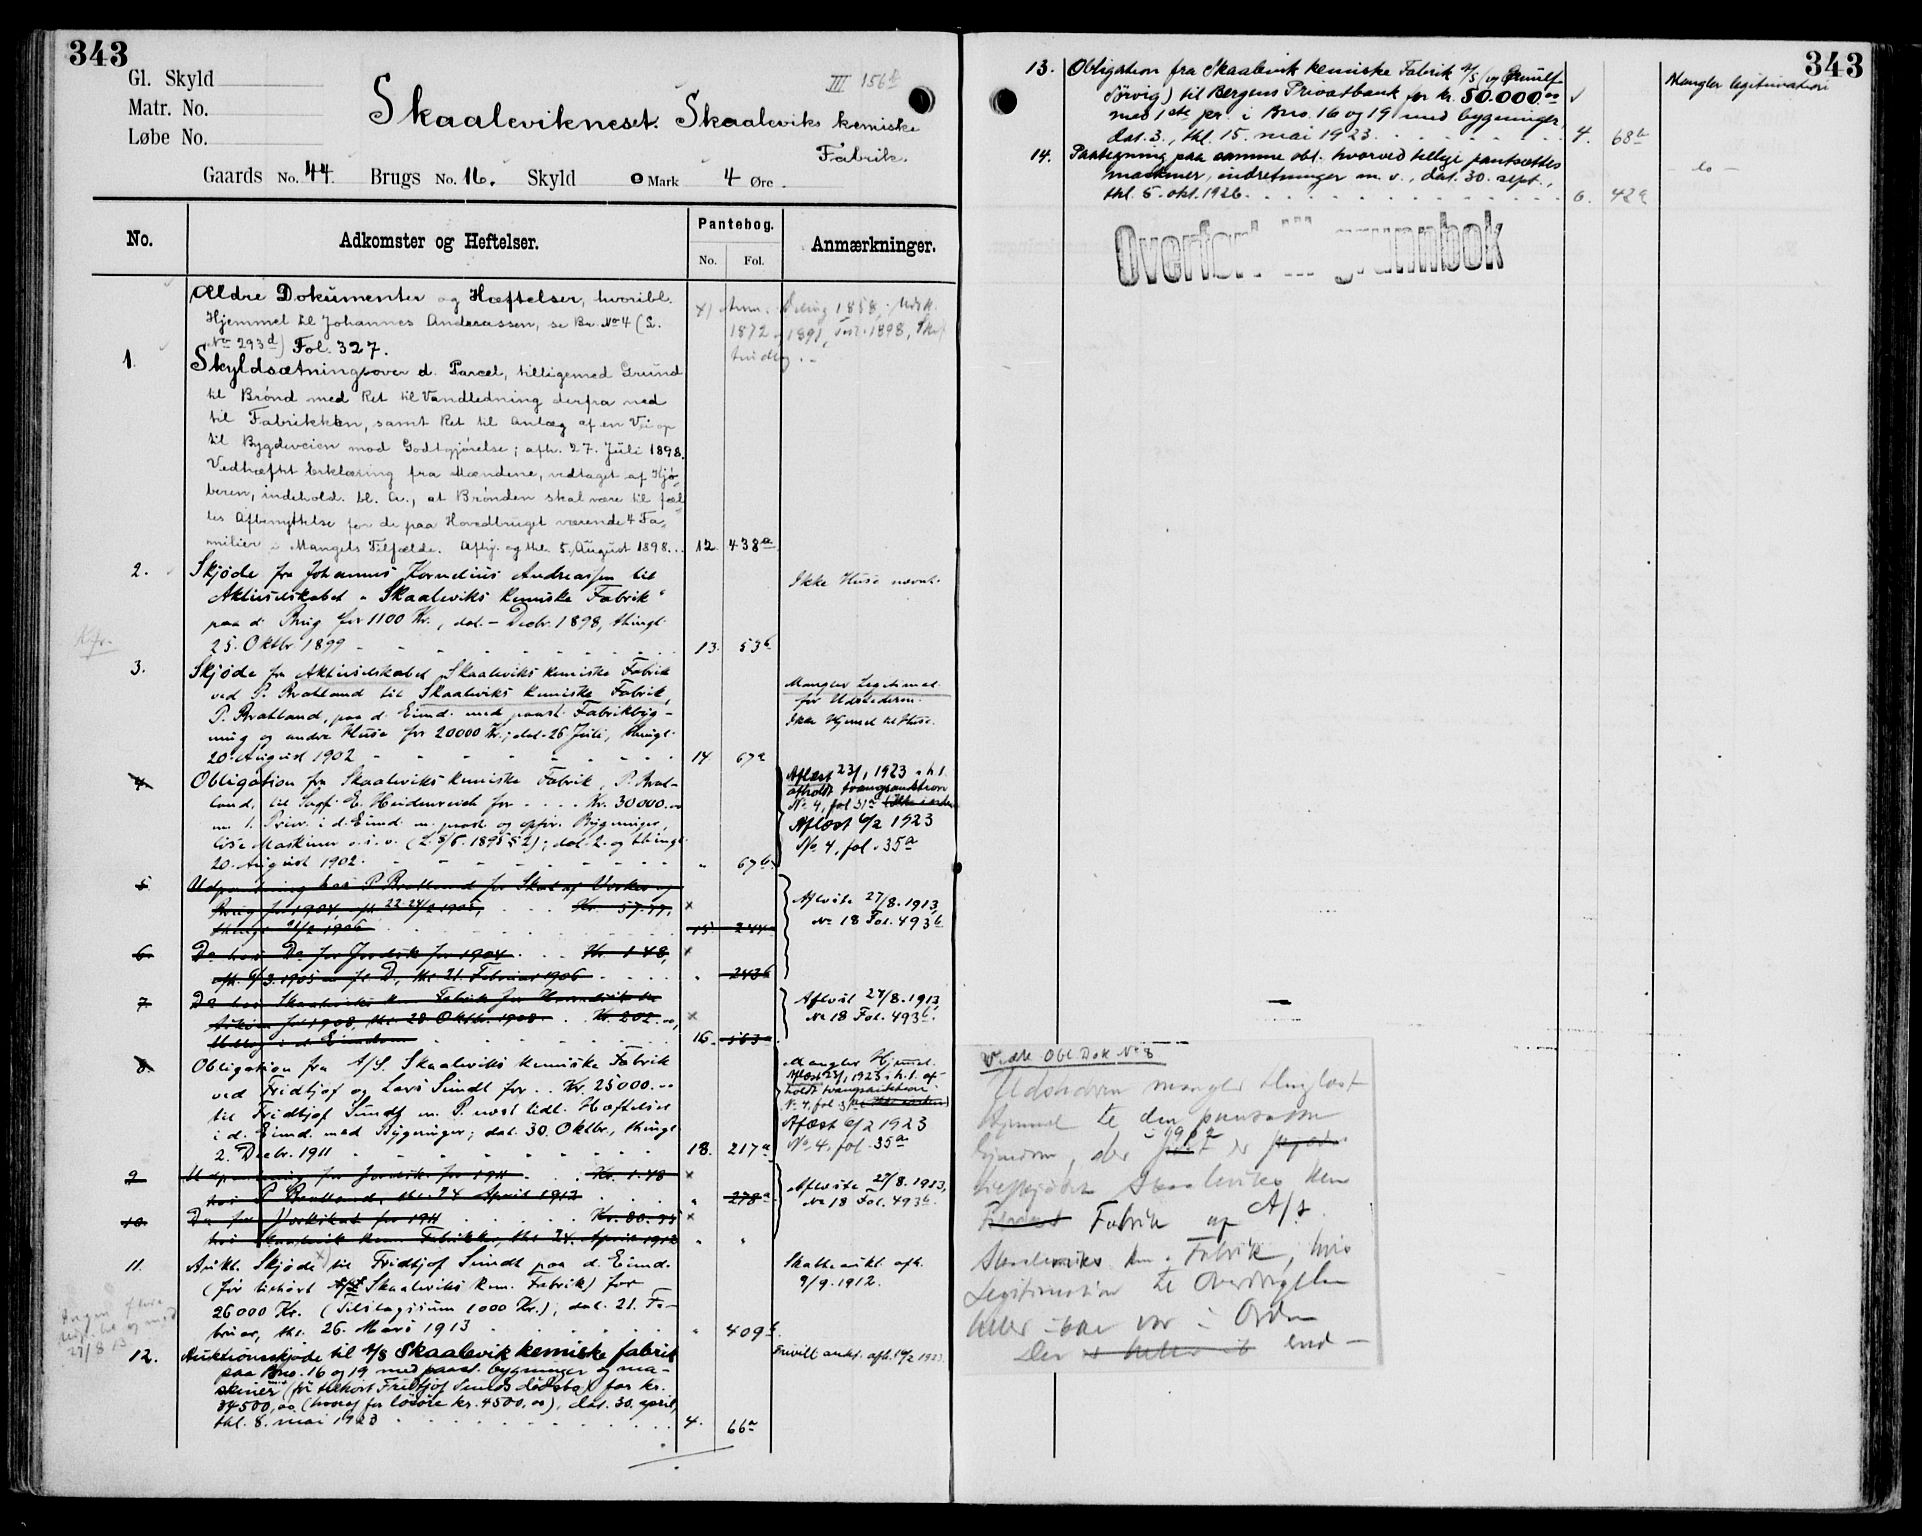 343
Gl. Skyld
Matr. No.
Løbe No.
III 156b
Skaalevikneset. Skaaleviks kemiske
Fabrik.
Gaards No. 44. Brugs No. 16. Skyld 0 Mark 4 Øre.
No.
Adkomster og Heftelser.
Pantebog.
No. Fol.
Anmærkninger.
Ældre Dokumenter og Hæftelser, hvoribl.
Hjemmel til Johannes Andreassen, se Br. No 4 (L.
No 293d) Fol. 327.
1. Skyldsætning over d. Parcel, tilligemed Grund
til Brønd med Ret til Vandledning derfra ned
til Fabrikken, samt Ret til Anlæg af en Vei op
til Bygdeveien mod Godtgjørelse; afh. 27. Juli 1898.
Vedhæftet Erklæring fra Mændene, vedtaget af Kjø-
beren, indehold. bl. a., at Brønden skal være til fæl-
les Afbenyttelse for de paa Hovedbruget værende 4 Fa-
milier i Mangels Tilfælde. Afhj. og thl. 5. August 1898. 12. 438a
2. Skjøde fra Johannes Kornelius Andreassen til
Aktieselskabet "Skaaleviks Kemiske Fabrik"
paa d. Brug for 1100 Kr., dat. - Decbr. 1898, thingl.
25. Oktbr 1899 13. 53b
Ikke Huse nævnt.
3. Skjøde fra Aktieselskabet Skaaleviks kemiske Fabrik
ved P. Bratland til Skaaleviks kemiske Fabrik,
P. Bratland, paa d. Eiend. med paast. Fabrikbyg-
ning og andre Huse for 20000 Kr.; dat. 26 Juli, thingl.
20. August 1902 14 67a
Mangler Legitimat.
for Udstederen.
Ikke Hjemmel til Huse.
4. Obligation fra Skaaleviks kemiske Fabrik, P. Brat-
land, til Sagf. E. Heidenreich for Kr. 30000.00
m. 1. Prior. i d. Eiend. m. paast. og opfør. Bygninger,
lise Maskiner o.s.v. (L. 8/6. 1895 § 2); dat. 2. og thingl.
20. August 1902. " 67b
Aflæst 23/1 1923 i h. t.
afholdt tvangsauktion
No 4, fol 31a
Aflæst 6/2 1923
No. 4, fol. 35a
5 Udpantning hos P. Bratland for Skat af Verket og
Brug for 1904, Kr. 57.77,
thingl. 21/2 1906 15 244a
Aflæste 27/8. 1913,
No 18 Fol. 493b
6. Do hos Do for Jordsk. for 1904 Kr. 1.48,
afh. 9/3. 1905 thl. 21. Februar 1906 " 243b
7. Do hos Skaaleviks kem. Fabrik for
for 1908, thl. 28. Oktbr. 1908. Kr. 202.00,
i d. Eiendom 16. 163a
Aflæst 27/8. 1913,
No 18 Fol. 493b.
8. Obligation fra A/S. Skaaleviks kemiske Fabrik
ved Fridtjof og Lars Sundt for Kr. 25000.00
til Fridtjof Sundt m. P. næst tidl. Hæftelser
i d. Eiend. med Bygninger; dat. 30. Oktbr., thingl.
2. Decbr. 1911 18. 217a
Mangler Hjemmel.
Aflæst 23/1 1923 i h. t. af-
holdt tvangsauktion
No. 4, fol 31a
Aflæst 6/2 1923
No. 4, fol. 35a
9. Udpantning for Jordsk. for 1911 Kr. 1.48
hos P. Bratland, thl. 24. April 1912 " 278a
Aflæste 27/8. 1913,
No 18 Fol. 493b.
10. Do for Verkskat for 1911 Kr. 80.
hos Skaalevik kem. Fabrikker, thl. 24. April 1912 " "
11. Aukt. Skjøde til Fridtjof Sundt paa d. Eiend.
(før tilhørt A/S Skaaleviks kem. Fabrik) for
26000 Kr. (Tilslagssum 1000 Kr.), dat. 21. Fe-
bruar, thl. 26. Mars 1913 " 409b
Skatteaukt. afh.
9/9. 1912.
27/8 13
12. Auktionsskjøde til A/S Skaalevik kemiske fabrik
paa Bno. 16 og 19 med paast. bygninger og ma-
skiner (før tilhørt Fridtjof Sundts dødsbo) for kr.
34500,00 (hvoraf for løsøre kr. 4500,00), dat. 30. april,
thl. 8. mai 1923 4. 66a
Frivill aukt. afh. 14/2 1923.
343
13. Obligation fra Skaalevik kemiske Fabrik A/S (og
) til Bergens Privatbank for kr. 50.000.00
med 1ste pr. i Bno. 16 og 19 med bygninger,
dat. 3., thl. 15. mai 1923. 4. 68b
Mangler legitimation
14. Paategning paa samme obl. hvorved tillige pantsættes
maskiner, indretninger m. v., dat. 30. sept.,
thl. 5. okt. 1926. 6. 42a
- do -
Overført til grunnbok
Vedr. Obl. Dok No 8
Udstederen mangler thinglæst
Hjemmel til den pantsatte
Eiendom, der 1902 er
Skaaleviks kem
Fabrik af A/S
Skaaleviks km. Fabrik, hvis
Legitimation til Overdragelsen
heller ikke var i Orden